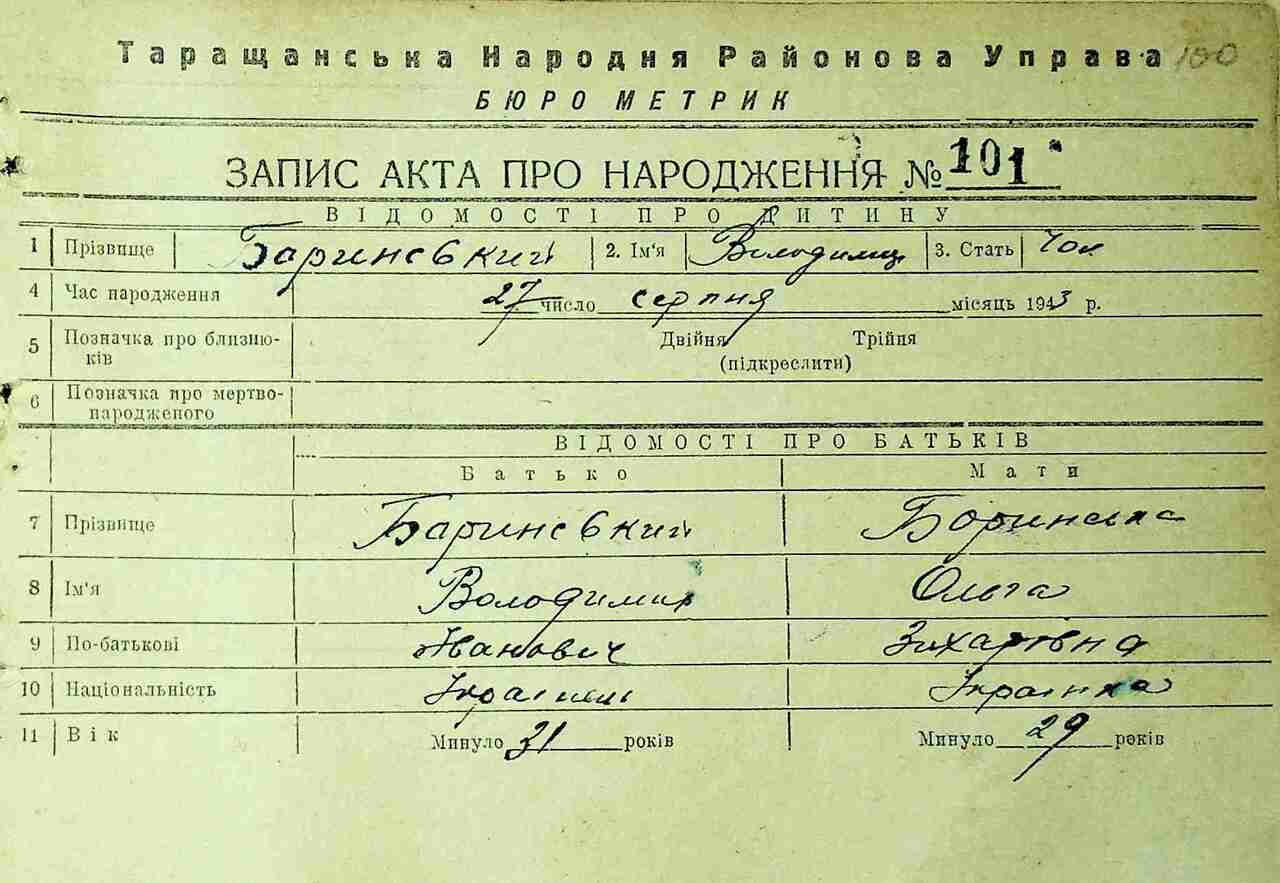 Таращанська Народня Районова Управа 100
БЮРО МЕТРИК
ЗАПИС АКТА ПРО НАРОДЖЕННЯ № 101
ВІДОМОСТІ ПРО ДИТИНУ
1 Прізвище Баринський 2. Ім'я Володимир 3. Стать Чол
4 Час народження 27 число серпня місяць 1943 р.
5 Позначка про близню- Двійня Трійня
ків (підкреслити)
6 Позначка про мертво-
народженого
ВІДОМОСТІ ПРО БАТЬКІВ
Батько Мати
7 Прізвище Баринський Боринська
8 Ім'я Володимир Ольга
9 По-батькові Іванович Захарівна
10 Національність Українець Українка
11 Вік Минуло 31 років Минуло 29 років